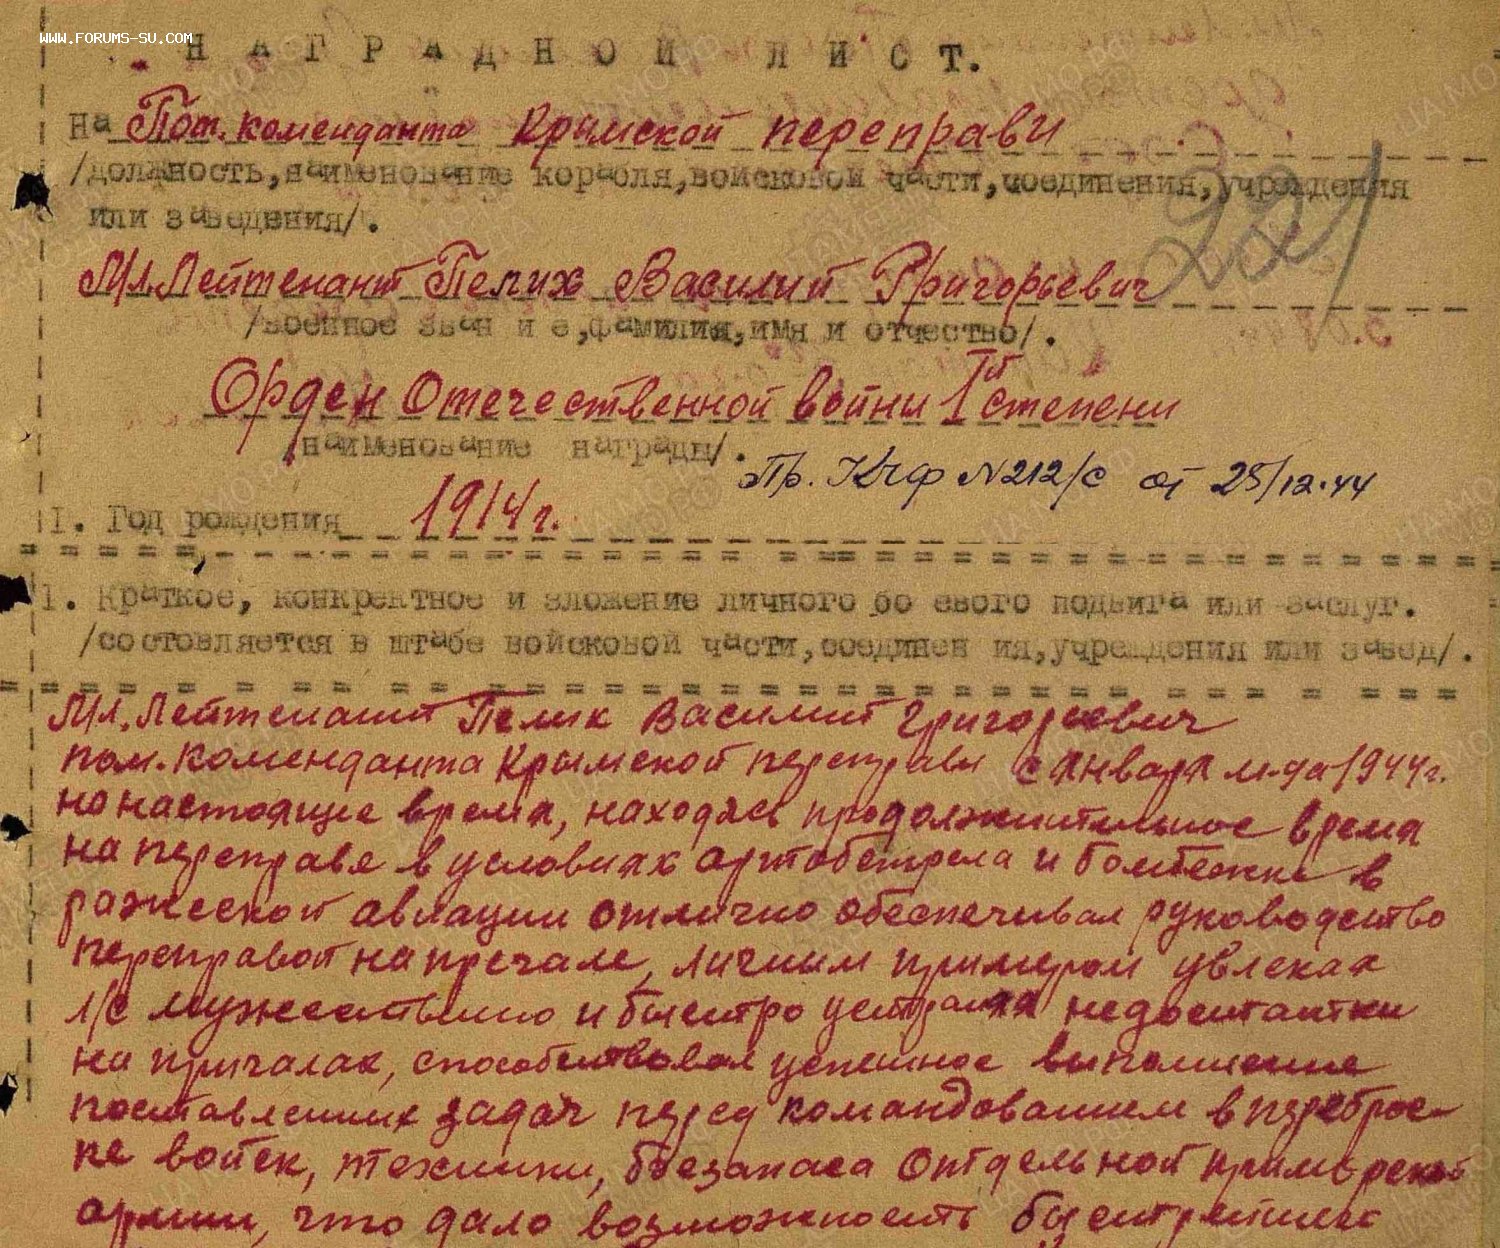 WWW.FORUMS-SU.COM
НАГРАДНОЙ ЛИСТ.
На Пом. коменданта Крымской переправи
/должность, наименование корабля, войсковой части, соединения, учреждения
или заведения/.
221
Мл. Лейтенант Пелих Василий Григорьевич
/военное зван и е, фамилия, имя и отчество/.
Орден Отечественной войны 1й степени
/наименование награды/.
Пр. КЧФ N 212/с от 25/12.44
I. Год рождения 1914 г.
1. Краткое, конкректное и зложение личного бо евого подвига или заслуг.
/состовляется в штабе войсковой части, соединен ия, учреждения или завед/.
Мл. Лейтенант Пелих Василий Григорьевич
пом. коменданта Крымской переправы с января м-ца 1944 г.
по настоящие время, находясь продолжительное время
на переправе в условиях артобстрела и бомбежки в
ражеской авиации отлично обеспечивал руководство
переправой на пречале, личным примером увлекая
л/с мужественно и быстро устраняя недостатки
на причалах, способствовал успешное выполнение
поставленных задач перед командованием в переброс-
ке войск, техники, боезапаса Отдельной приморской
армии, что дало возможность быстрейших